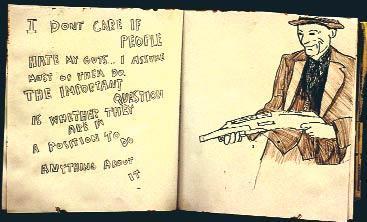 I DONT CARE IF
PEOPLE
HATE MY GUTS.. I ASSUME
MOST OF THEM DO.
THE IMPORTANT
QUESTION
IS WHETHER THEY
ARE IN
A POSITION TO DO
ANYTHING ABOUT
IT